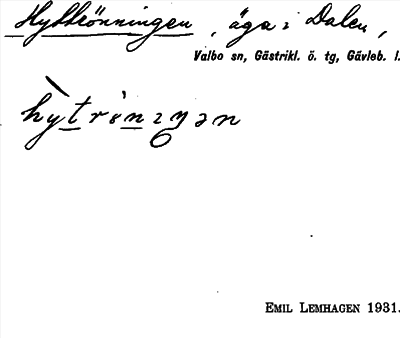 Hyttrönningen, äga i Dalen,
Valbo sn, Gästrikl. ö. tg, Gävleb. l.
hytrönɩŋən
EMIL LEMHAGEN 1931.